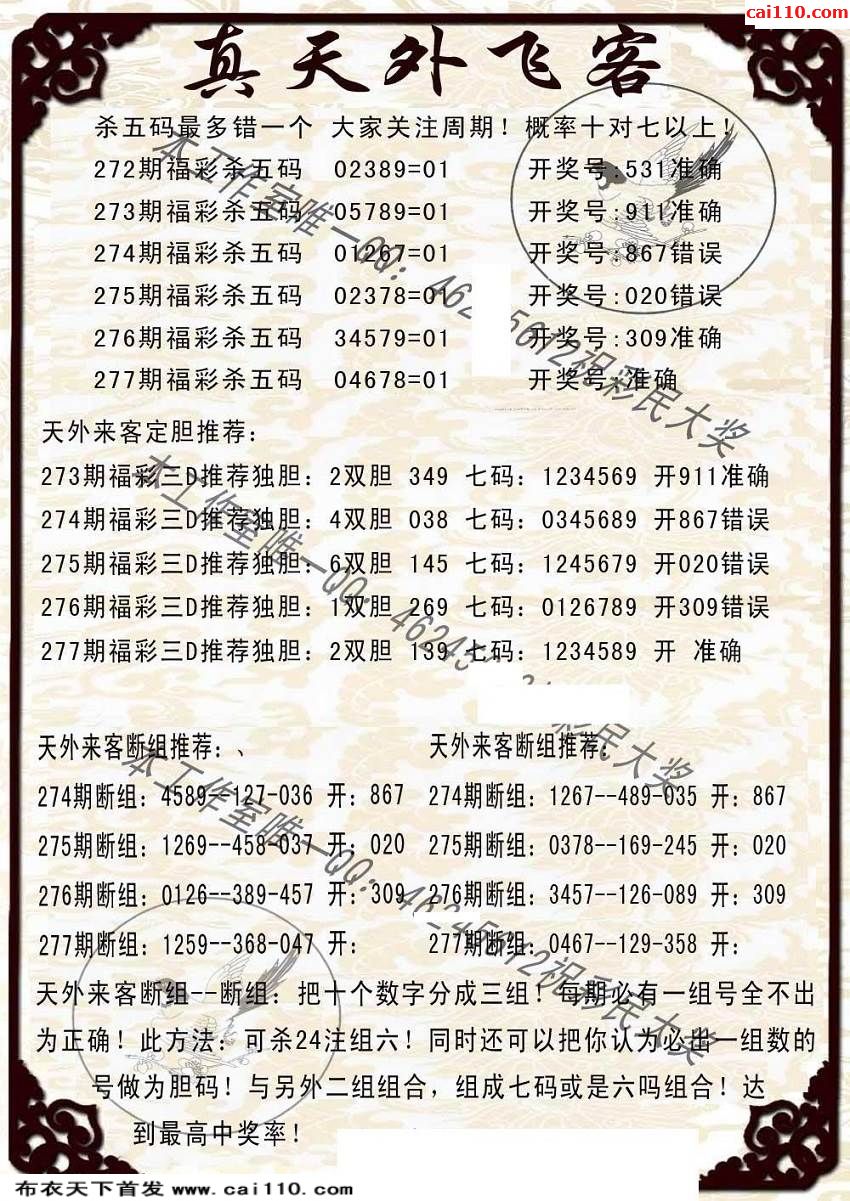 cai110.com
真天外飞客
杀五码最多错一个 大家关注周期！概率十对七以上！
272期福彩杀五码 02389=01 开奖号:531准确
273期福彩杀五码 05789=01 开奖号:911准确
274期福彩杀五码 01267=01 开奖号:867错误
275期福彩杀五码 02378=01 开奖号:020错误
276期福彩杀五码 34579=01 开奖号:309准确
277期福彩杀五码 04678=01 开奖号:准确
天外来客定胆推荐：
273期福彩三D推荐独胆：2双胆 349 七码：1234569 开911准确
274期福彩三D推荐独胆：4双胆 038 七码：0345689 开867错误
275期福彩三D推荐独胆：6双胆 145 七码：1245679 开020错误
276期福彩三D推荐独胆：1双胆 269 七码：0126789 开309错误
277期福彩三D推荐独胆：2双胆 139 七码：1234589 开 准确
天外来客断组推荐：、 天外来客断组推荐：
274期断组：4589--127-036 开：867 274期断组：1267--489-035 开：867
275期断组：1269--458-037 开：020 275期断组：0378--169-245 开：020
276期断组：0126--389-457 开：309 276期断组：3457--126-089 开：309
277期断组：1259--368-047 开： 277期断组：0467--129-358 开：
天外来客断组--断组：把十个数字分成三组！每期必有一组号全不出
为正确！此方法：可杀24注组六！同时还可以把你认为必出一组数的
号做为胆码！与另外二组组合，组成七码或是六吗组合！达
到最高中奖率！
本工作室唯一QQ：462 5612祝彩民大奖
本工作室唯一QQ：46243 彩民大奖
本工作室唯一QQ：46245612祝彩民大奖
布衣天下首发 www.cai110.com